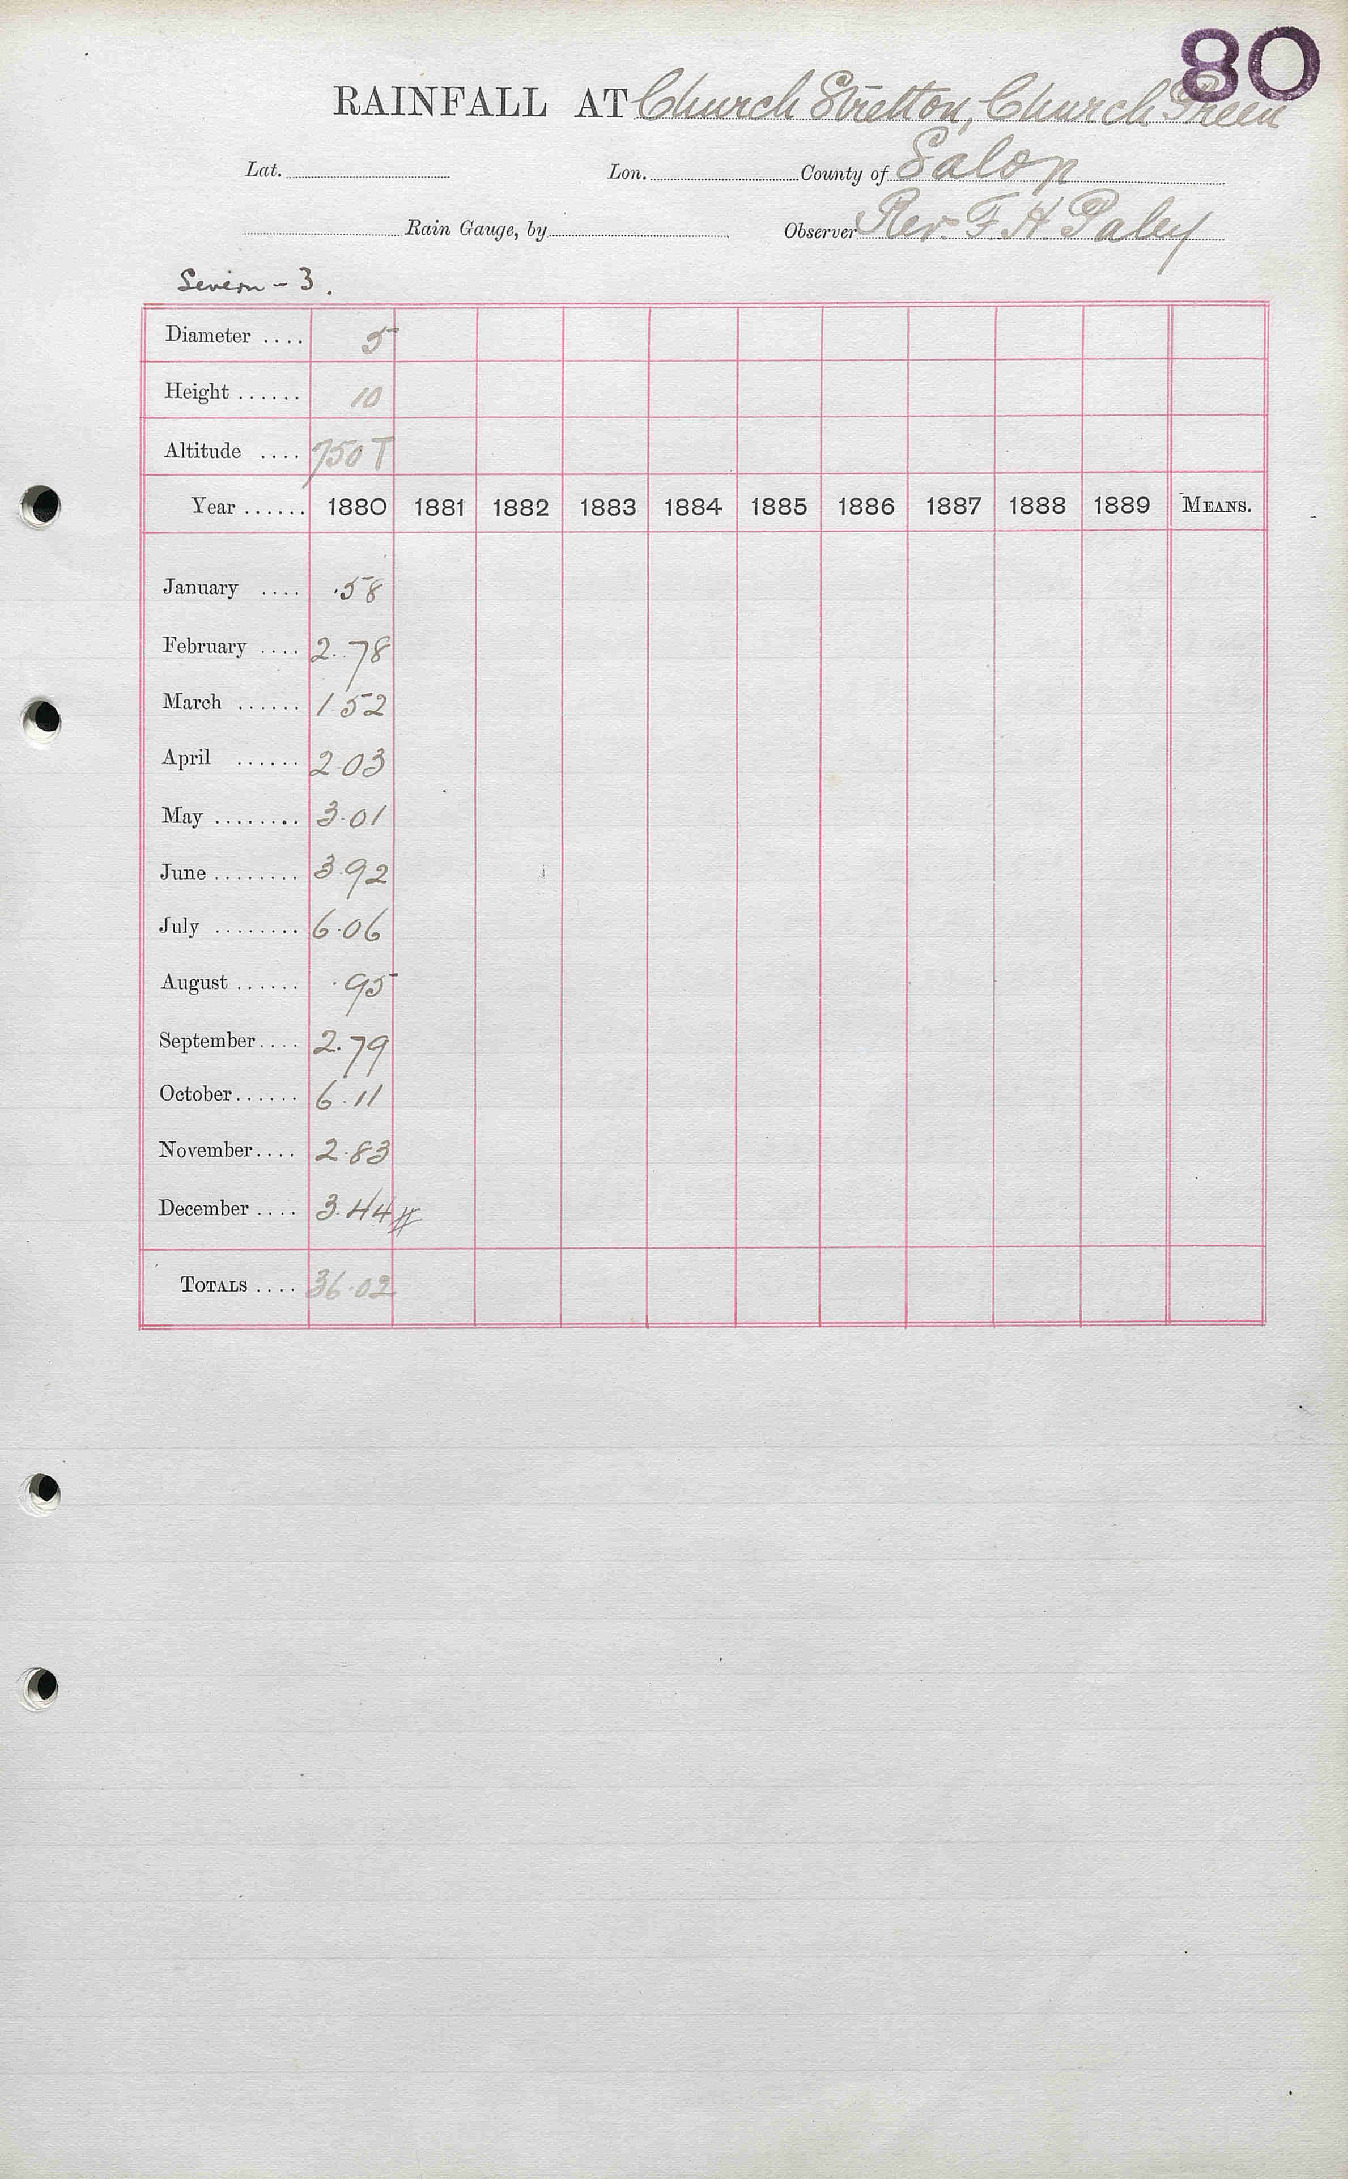 80
RAINFALL AT Church Stretton, Church Preen
Lat. Lon. County of Salop
Rain Gauge, by Observer Rev. F. H. Paley
Severn - 3.
Diameter .... 5
Height ...... 10
Altitude .... 750 T
Year ...... 1880 1881 1882 1883 1884 1885 1886 1887 1888 1889 MEANS.
January .... .58
February .... 2.78
March ...... 1.52
April ...... 2.03
May ........ 3.01
June ........ 3.92
July ........ 6.06
August ...... .95
September .... 2.79
October ...... 6.11
November .... 2.83
December .... 3.44 #
TOTALS .... 36.02